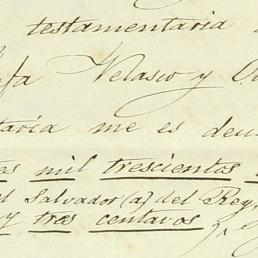 testamentaria
Velasco y
me es
mil trescientos
Salvador (a) del Rey,
y tres centavos